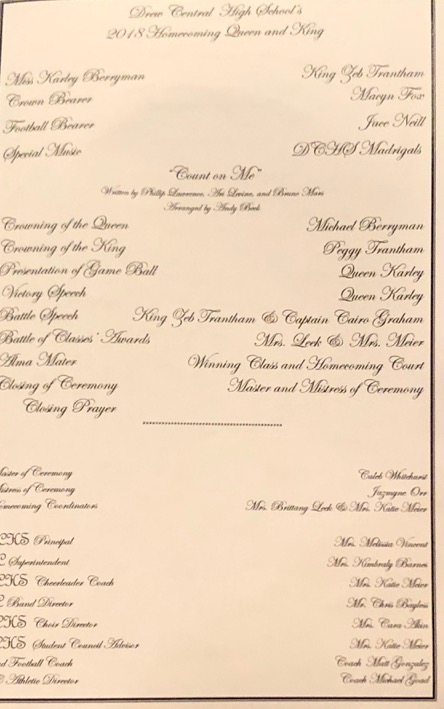 Drew Central High School's
2018 Homecoming Queen and King
Miss Karley Berryman King Zeb Trantham
Crown Bearer Macyn Fox
Football Bearer Jace Neill
Special Music DCHS Madrigals
"Count on Me"
Written by Philip Lawrence, Ari Levine, and Bruno Mars
Arranged by Andy Beck
Crowning of the Queen Michael Berryman
Crowning of the King Peggy Trantham
Presentation of Game Ball Queen Karley
Victory Speech Queen Karley
Battle Speech King Zeb Trantham & Captain Cairo Graham
Battle of Classes' Awards Mrs. Leek & Mrs. Meier
Alma Mater Winning Class and Homecoming Court
Closing of Ceremony Master and Mistress of Ceremony
Closing Prayer
aster of Ceremony Caleb Whitehurst
istress of Ceremony Jazmyne Orr
omecoming Coordinators Mrs. Brittany Leek & Mrs. Katie Meier
CHS Principal Mrs. Melissa Vincent
C Superintendent Mrs. Kimbraly Barnes
CHS Cheerleader Coach Mrs. Katie Meier
C Band Director Mr. Chris Bayless
CHS Choir Director Mrs. Cara Akin
CHS Student Council Advisor Mrs. Katie Meier
d Football Coach Coach Matt Gonzalez
C Athletic Director Coach Michael Goad